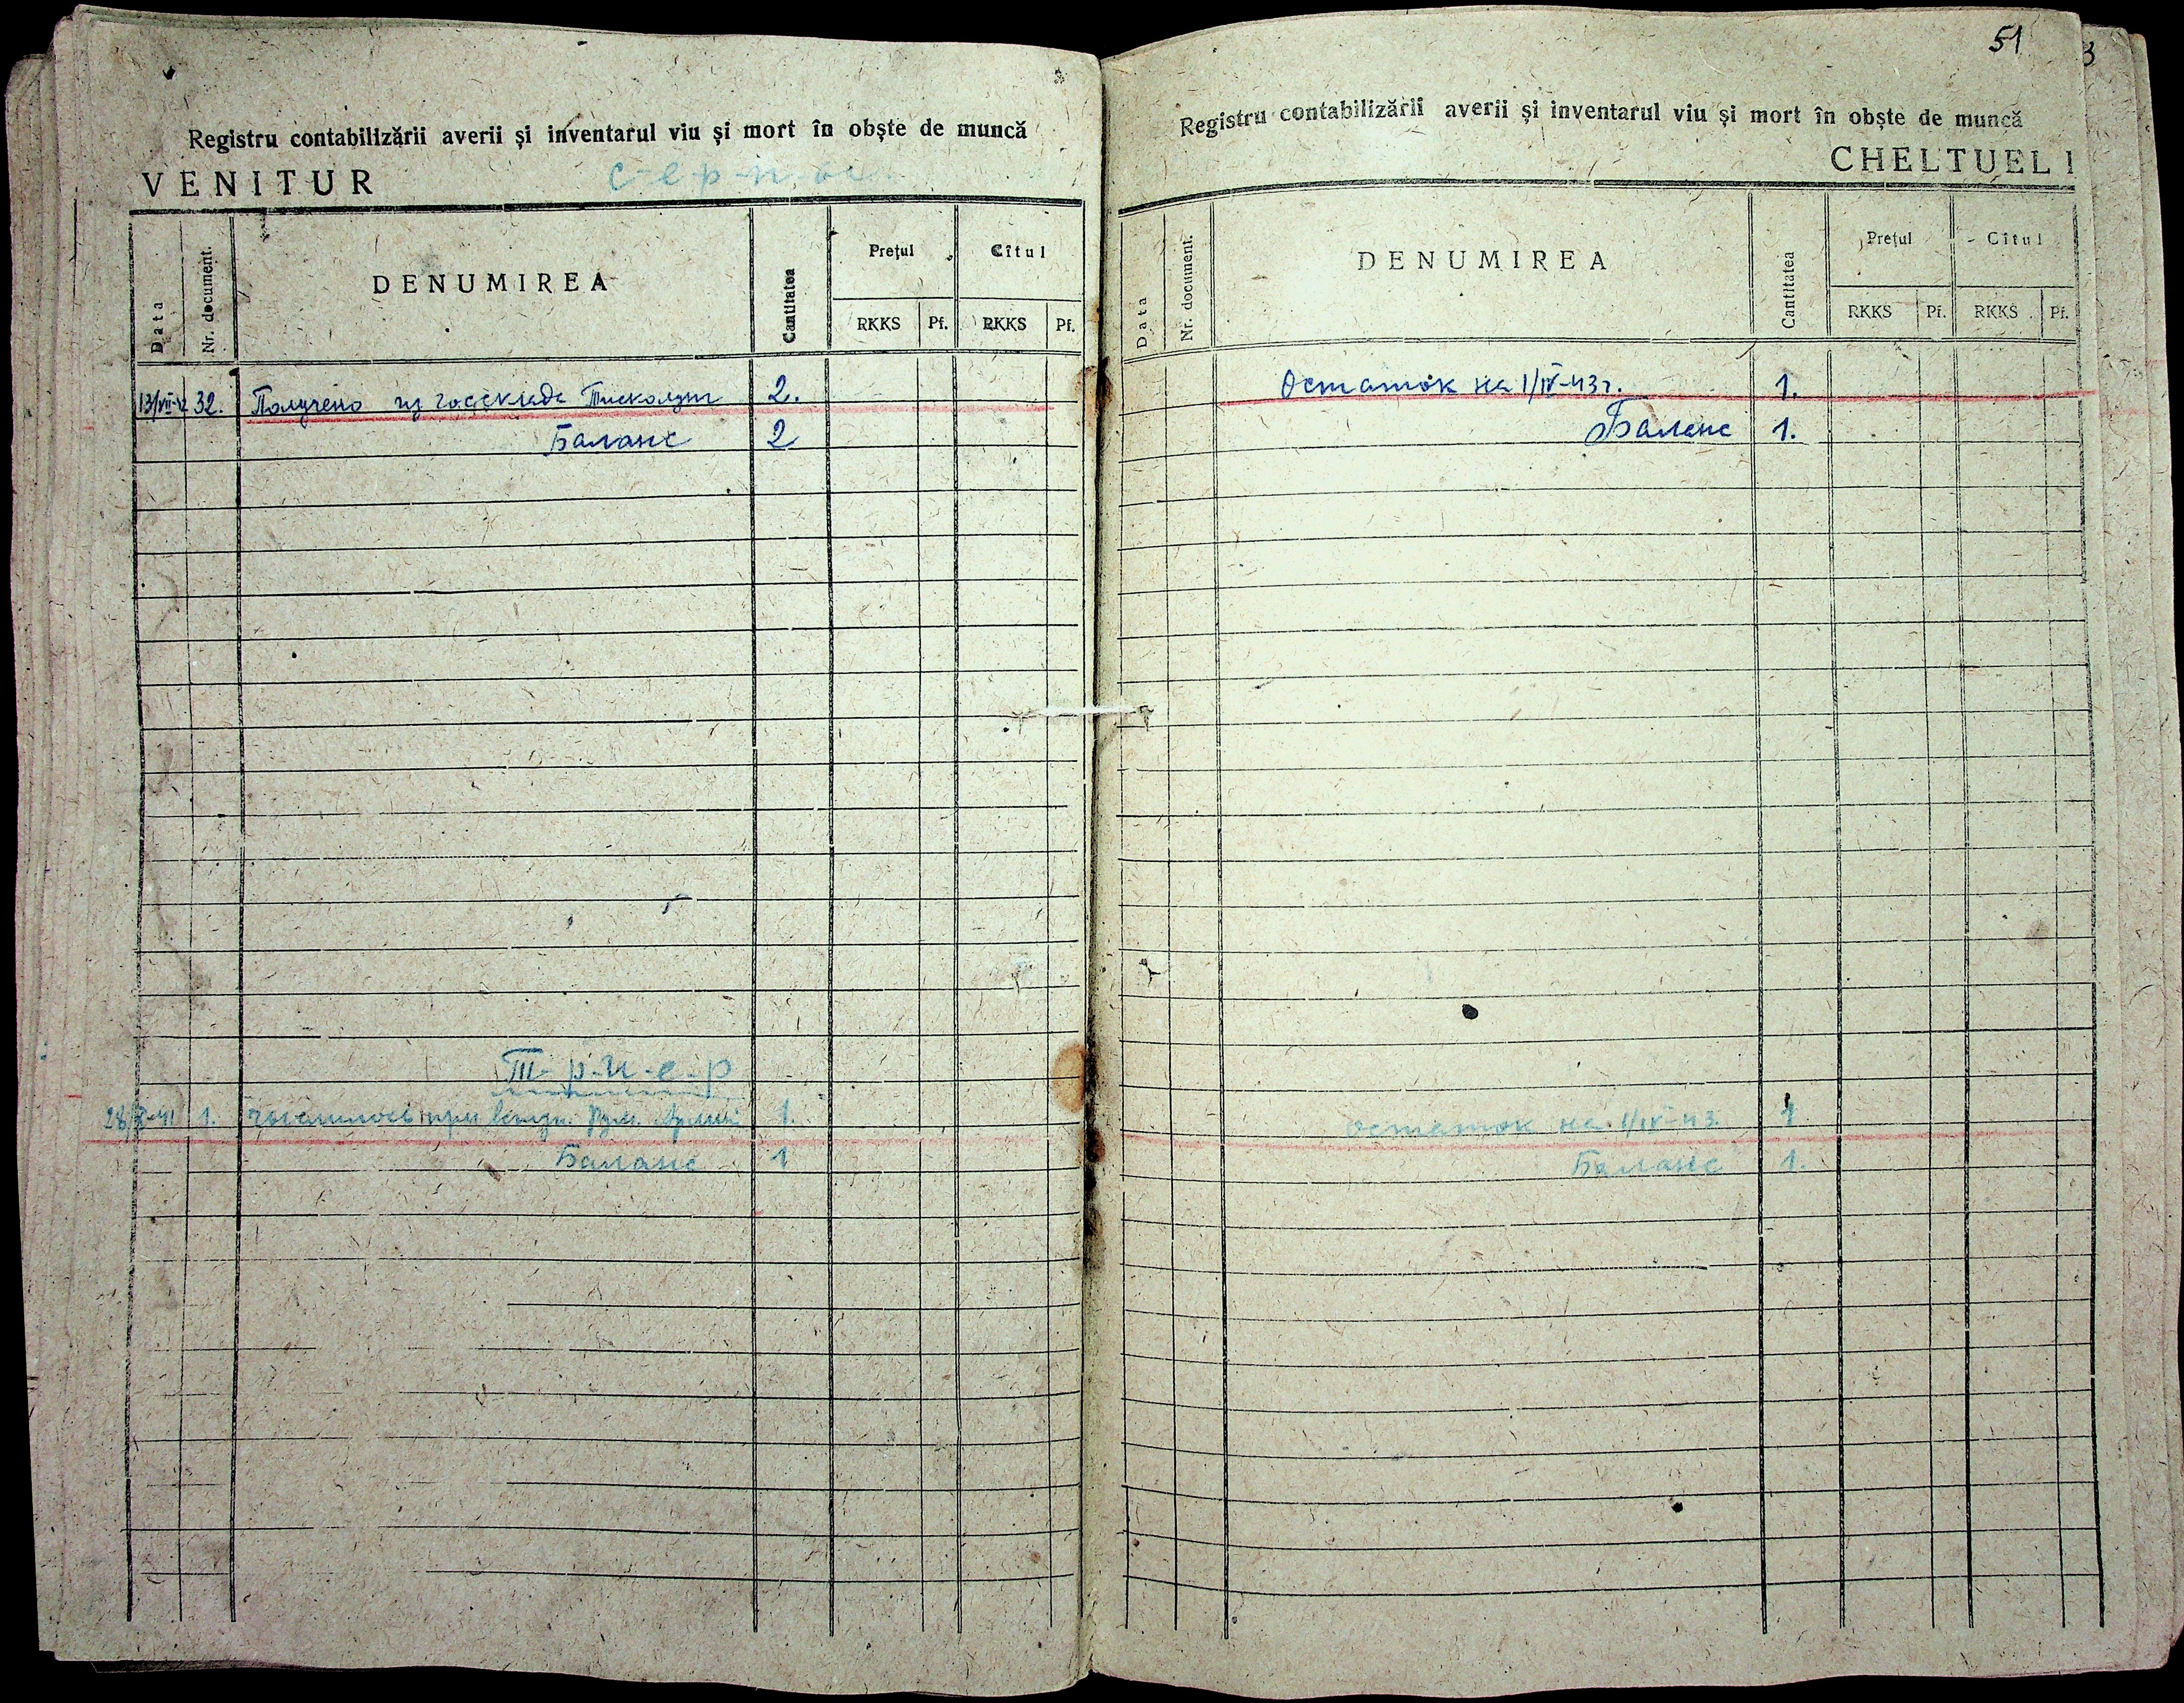 51
3
Registru contabilizării averii și inventarul viu și mort în obște de muncă
VENITUR
Data
Nr. document.
DENUMIREA
Cantitatea
Prețul
Cîtul
RKKS
Pf.
RKKS
Pf.
13/VII-42 32. Получено из госсклада 2.
Баланс 2
Т-р-и-е-р
1. при Рум. 1.
Баланс 1
Registru contabilizării averii și inventarul viu și mort în obște de muncă
CHELTUELI
Data
Nr. document.
DENUMIREA
Cantitatea
Prețul
Cîtul
RKKS
Pf.
RKKS
Pf.
Остаток на 1/IV-43г. 1.
Баланс 1.
Остаток на 1/IV-43. 1
Баланс 1.